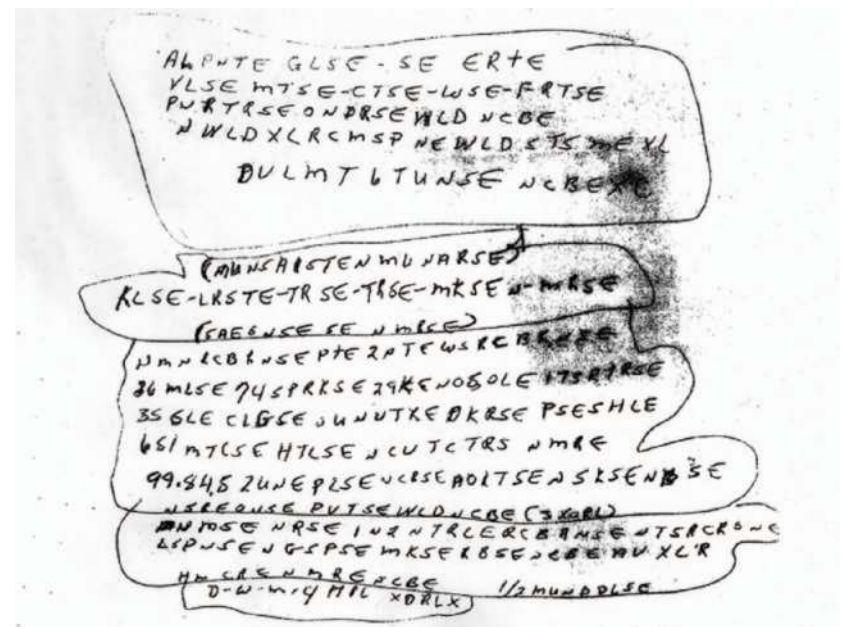 ALPNTE GLSE - SE ERTE
VLSE MTSE-CTSE-WSE-FRTSE
PNRTRSEONDRSEWLD NCBE
NWLDXLRCMSP NEWLDSTS MEXL
DULMT6TUNSE NCBEXE
(MUNSARSTENMUNARSE)
KLSE-LRSTE-TRSE-TRSE-MKSEN-MRSE
(SAEGNSE SE NMRSE)
NMNRCBRNSEPTE2NTEWSRCBRNSE
36 MLSE 74SPRKSE29KENOSOLE 173RTRSE
35 GLE CLGSE UUNUTKE DKRSE PSESHLE
651 MTCSE HTLSE NCUTCTRS NMRE
99.84.5 2UNEPLSE NCRSE AOLTSE NSKSENBSE
NSREONSE PUTSEWLDNCBE (3XORL)
NMSE NRSE IN2NTRLERCBRNSENTSRCRONE
LSPNSENGSPSE MKSERBSENCBE AUXLR
HMCRENMRENCBE 1/2 MUNDDLSE
D-W-M-4 MIL XDRLX